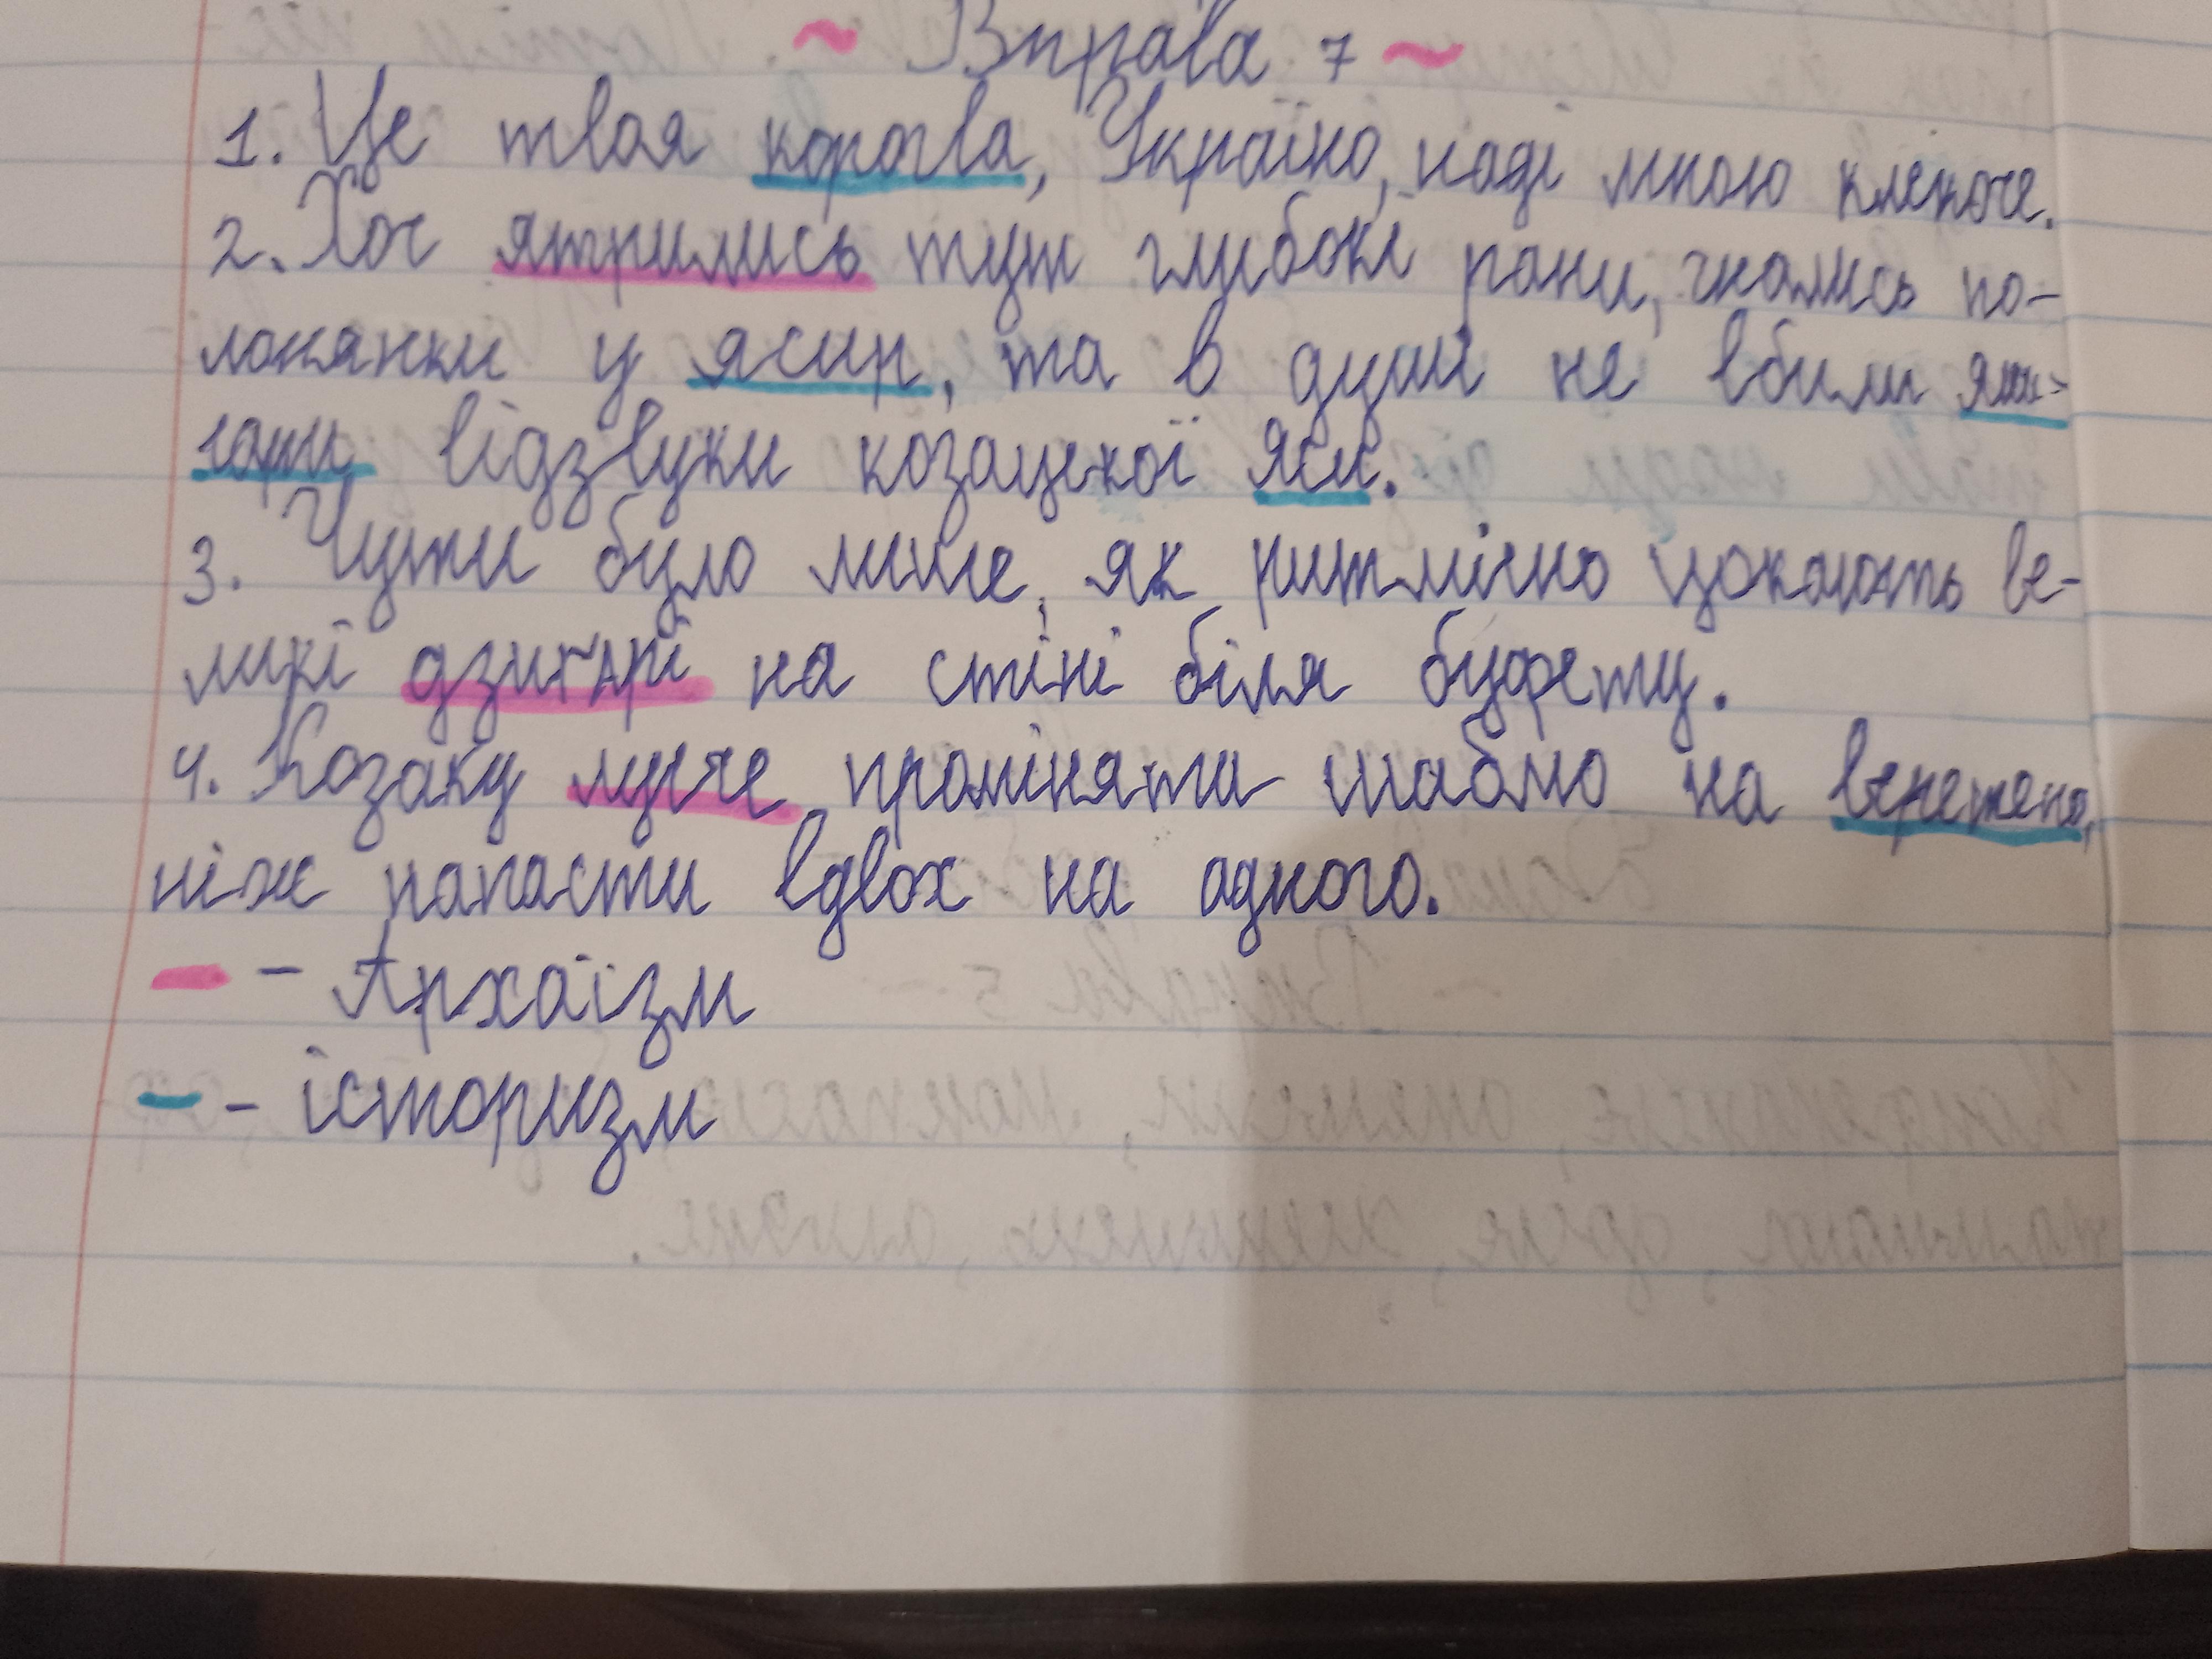 ~ Вправа 7 ~
1. Це твоя корогва, Україно, наді мною клекоче.
2. Хоч ятрились тут глибокі рани, гнались по-
лонянки у ясир, та в душі не вбили яни-
чари відзвуки козацької яси.
3. Чути було лише, як ритмічно цокають ве-
ликі дзиґарі на стіні біля буфету.
4. Козаку лучче проміняти шаблю на веретено,
ніж напасти вдвох на одного.
– Архаїзм
– історизм